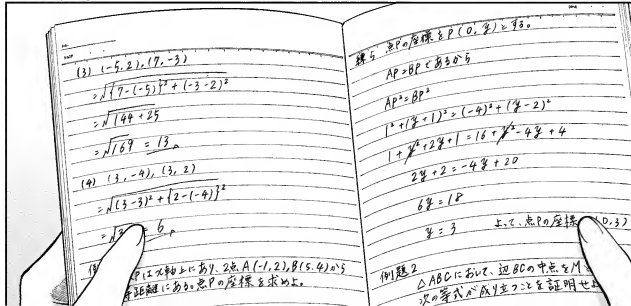 (3) (-5, 2), (7, -3)
=√{7-(-5)}²+(-3-2)²
=√144+25
=√169 = 13
(4) (3, -4), (3, 2)
=√(3-3)²+{2-(-4)}²
= 6
Pはx軸上にあり、2点A(-1, 2), B(5, 4)から
等距離にある。点Pの座標を求めよ。
練5 点Pの座標をP(0, y)とする。
AP=BPであるから
AP²=BP²
1²+(y+1)²=(-4)²+(y-2)²
1+y²+2y+1=16+y²-4y+4
2y+2=-4y+20
6y=18
y=3 よって、点Pの座標 (0, 3)
例題2
△ABCにおいて、辺BCの中点をM
次の等式が成り立つことを証明せよ